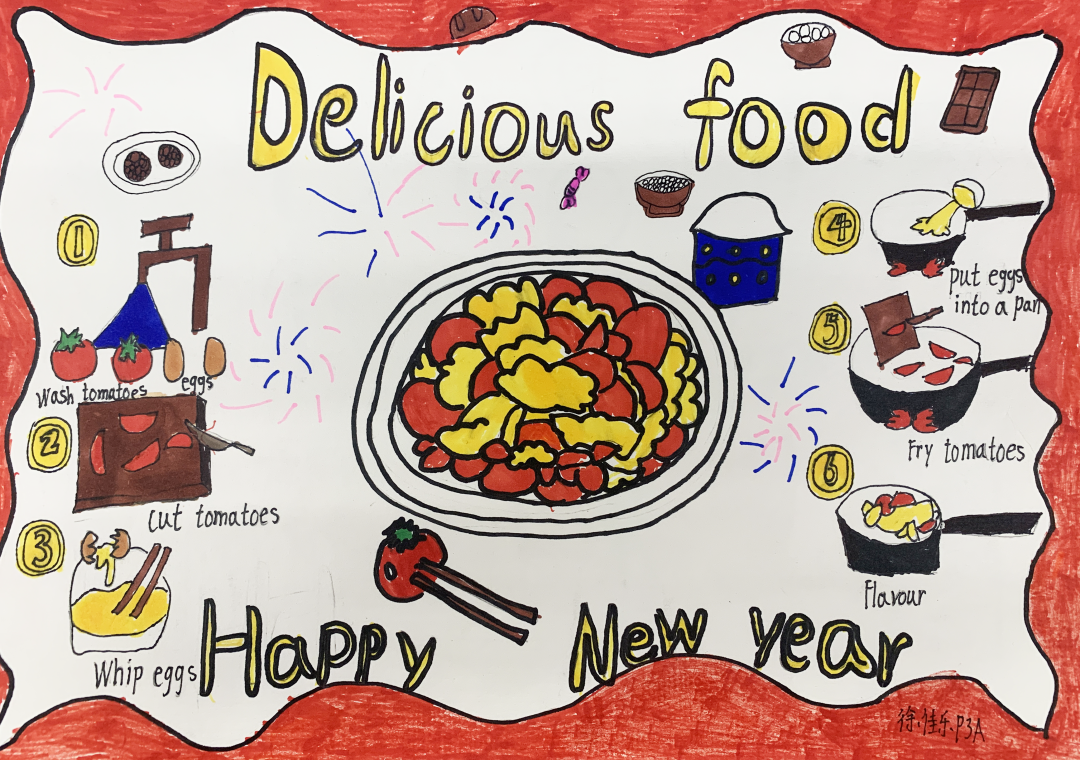 Delicious food
1
Wash tomatoes eggs
2
cut tomatoes
3
Whip eggs
4
put eggs
into a pan
5
Fry tomatoes
6
Flavour
Happy New year
徐佳乐P3A